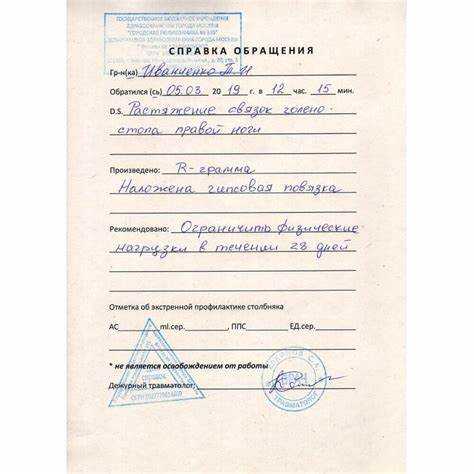 ГОСУДАРСТВЕННОЕ БЮДЖЕТНОЕ УЧРЕЖДЕНИЕ
ЗДРАВООХРАНЕНИЯ ГОРОДА МОСКВЫ
"ГОРОДСКАЯ ПОЛИКЛИНИКА №
ДЕПАРТАМЕНТА ЗДРАВООХРАНЕНИЯ ГОРОДА МОСКВЫ
СПРАВКА ОБРАЩЕНИЯ
Гр-н(ка) Иванченко Т.И
Обратился (сь) 05.03 2019 г. в 12 час. 15 мин.
D.S. Растяжение связок голено-
стопа правой ноги
Произведено: R-грамма
Наложена гипсовая повязка
Рекомендовано: Ограничить физические
нагрузки в течении 28 дней
Отметка об экстренной профилактике столбняка
АС ml.сер. , ППС ЕД.сер.
* не является освобождением от работы
Дежурный травматолог:
ТРАВМАТОЛОГ